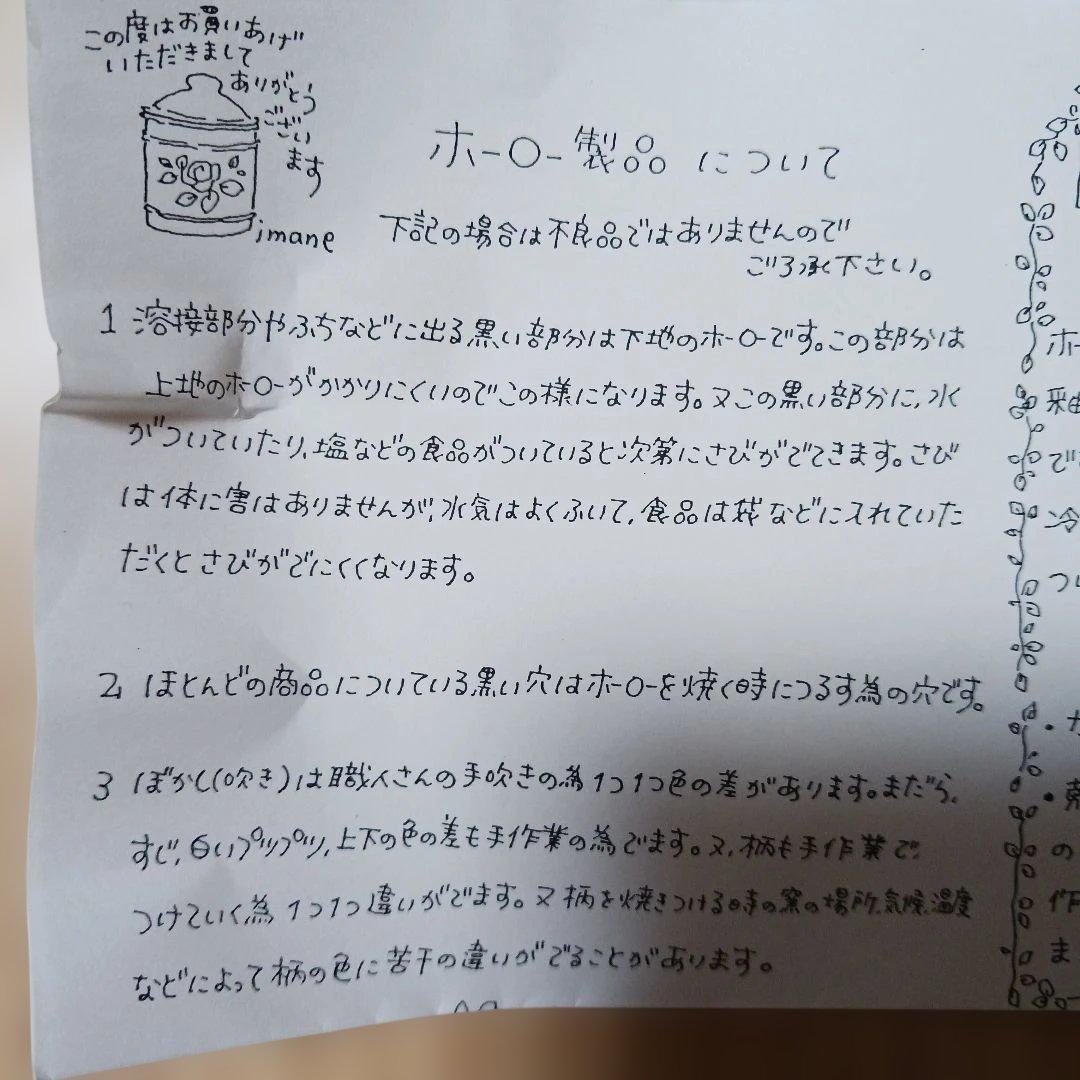 この度はお買いあげ
いただきまして
ありがとう
ござい
ます
imane
ホーロー製品について
下記の場合は不良品ではありませんので
ご了承下さい。
1 溶接部分やふちなどに出る黒い部分は下地のホーローです。この部分は
上地のホーローがかかりにくいのでこの様になります。又この黒い部分に、水
がついていたり、塩などの食品がついていると次第にさびがでてきます。さび
は体に害はありませんが、水気はよくふいて、食品は袋などに入れていた
だくとさびがでにくくなります。
2 ほとんどの商品についている黒い穴はホーローを焼く時につるす為の穴です。
3 ぼかし(吹き)は職人さんの手吹きの為1つ1つ色の差があります。まだら、
すじ、白いプツプツ、上下の色の差も手作業の為でます。又、柄も手作業で、
つけていく為1つ1つ違いがでます。又柄を焼きつける時の窯の場所、気候、温度
などによって柄の色に苦干の違いがでることがあります。
ホー
釉
で
冷
つ
・カ
・
の
作
ま